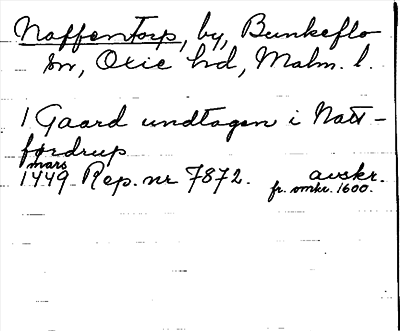 Naffentorp, by, Bunkeflo
sn, Oxie hd, Malm. l.
1 Gaard undtagen i Natt-
fordrup
mars
1449 Rep. nr 7872. avskr.
fr. omkr. 1600.